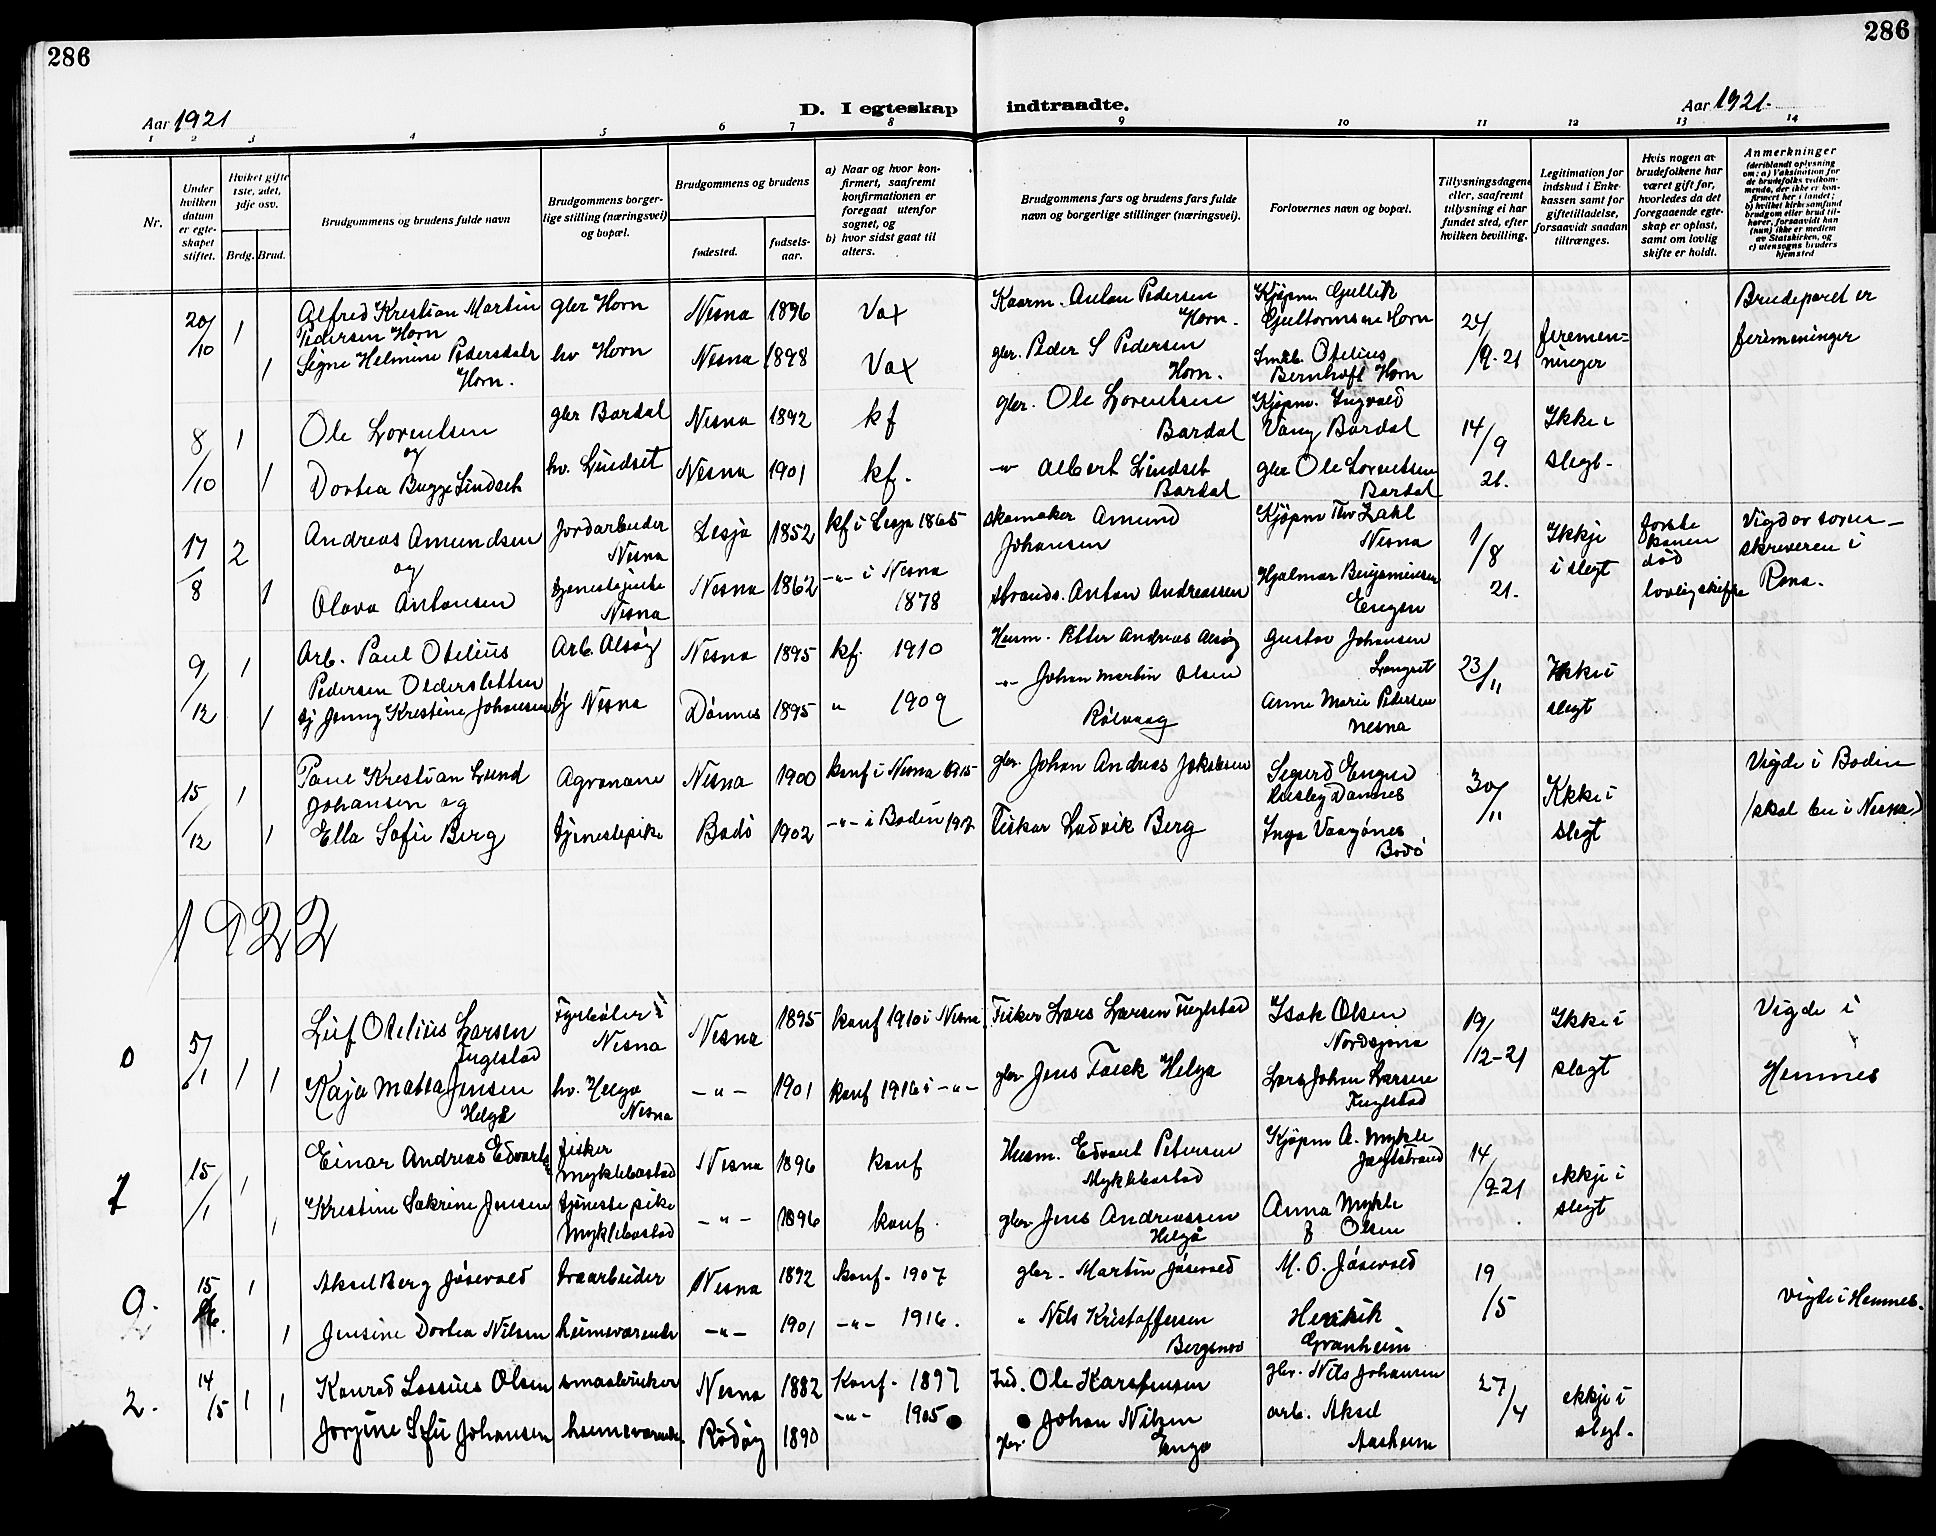 286
286
Aar 1921
D. I egteskap indtraadte.
Aar 1921.
1 2 3 4 5 6 7 8 9 10 11 12 13 14
Nr.
Under hvilken datum er egteskapet stiftet.
Hvilket gifte 1ste, 2det, 3dje osv.
Brdg. Brud.
Brudgommens og brudens fulde navn
Brudgommens borgerlige stilling (næringsvei) og bopæl.
Brudgommens og brudens
fødested.
fødselsaar.
a) Naar og hvor konfirmert, saafremt konfirmationen er foregaat utenfor sognet, og
b) hvor sidst gaat til alters.
Brudgommens fars og brudens fars fulde navn og borgerlige stillinger (næringsvei).
Forlovernes navn og bopæl.
Tillysningsdagene eller, saafremt tillysning ei har fundet sted, efter hvilken bevilling.
Legitimation for indskud i Enkekassen samt for giftetilladelse, forsaavidt saadan tiltrænges.
Hvis nogen av brudefolkene har været gift før, hvorledes da det foregaaende egteskap er opløst, samt om lovlig skifte er holdt.
Anmerkninger
(deriblandt oplysning om: a) Vaksination for de brudefolks vedkommende, der ikke er konfirmert her i landet; b) hvilket kirkesamfund brudgom eller brud tilhører, forsaavidt han (hun) ikke er medlem av Statskirken, og c) utensogns bruders hjemsted
20/10 1 Alfred Kristian Martin Pedersen Horn gbr Horn Nesna 1896 Vax Anton Pedersen Horn. Kjøpm. Horn 24/9-21 Brudeparet er
1 Signe Helmine Pedersdatr Horn. hv Horn Nesna 1898 Vax gbr. Peder S Pedersen Horn. Otelius Bernhoft Horn
8/10 1 Ole Lorentsen og gbr Bardal Nesna 1892 kf gbr. Ole Lorentsen Bardal Kjøpm. Ingvald Vang Bardal 14/9 21. Ikke i slegt.
1 Dortea Bugge Lindset hv. Lindset Nesna 1901 kf. -"- Albert Lindset Bardal gbr Ole Lorentsen Bardal
17/8 2 Andreas Amundsen og Jordarbeider Nesna Lesja 1852 kf i Lesja 1865 skomaker Amund Johansen Kjøpm Thv Zahl Nesna 1/8 21. Ikkje i slegt første konen død lovlig skifte Vigd av sorenskriveren i Rana.
1 Olava Antonsen Nesna Nesna 1862 -"- i Nesna 1878 Anton Andreassen Hjalmar Benjaminsen Engen
9/12 1 Arb. Paul Otelius Pedersen Oldersletten Arb. Alsøy Nesna 1895 kf. 1910 Husm. Petter Andreas Alsøy Gustav Johansen Langset 23/11 Ikke i slegt
1 tj Jenny Kristine Johansen tj Nesna Dønnes 1895 " 1909 -"- Johan Martin Olsen Rølvaag Anne Marie Pedersen Nesna
15/12 1 Paul Kristian Lund Johansen og Agronom Nesna 1900 konf i Nesna 1915 gbr. Johan Andreas Jakobsen Sigurd Engen Dønnes 30/11 Ikke i slegt Vigde i Bodin
1 Ella Sofie Berg tjenestepike Bodø 1902 -"- i Bodin Fisker Ludvik Berg Inga Vaagønes Bodø (skal bu i Nesna)
1922
0 5/1 1 1 Leif Otelius Larsen Fuglstad Fyrbøter i Nesna Nesna 1895 konf 1910 i Nesna Fisker Lars Larsen Fuglstad Isak Olsen Nordsjona 19/12-21 Ikke i slegt Vigde i Hemnes
Kaja Matea Jensen Helgø hv. Helgø Nesna -"- 1901 konf 1916 i -"- gbr Jens Falck Helgø Lars Johan Larsen Fuglstad
15/1 1 Einar Andreas Edvarts fisker Myklebostad Nesna 1896 konf Husm. Edvart Petersen Myklebostad Kjøpm A. Mykle 14/9-21 ekkje i slegt
1 Kristine Sakrine Jensen tjeneste pike Myklebostad -"- 1896 konf. gbr. Jens Andreassen Helgø Anna Mykle Olsen
15 1 Aksel Berg Jøsevold Nesna 1892 konf. 1907 gbr. Martin Jøsevold M. O. Jøsevold 19/5
1 Jensine Dortea Nilsen heimeværende -"- 1901 -"- 1916. " Nils Kristoffersen Henrik Granheim vigde i Hemnes.
2. 14/5 1 1 Konrad Lassius Olsen smaabruker Nesna 1882 Konf. 1897 Ind. Ole Karstensen gbr. Nils Johansen 27/4 ekkje i slegt.
Jorgine Sofie Johansen heimeværende Rødøy 1890 -"- 1905 gbr. Johan Nilsen Enga arb. Aksel Aasheim